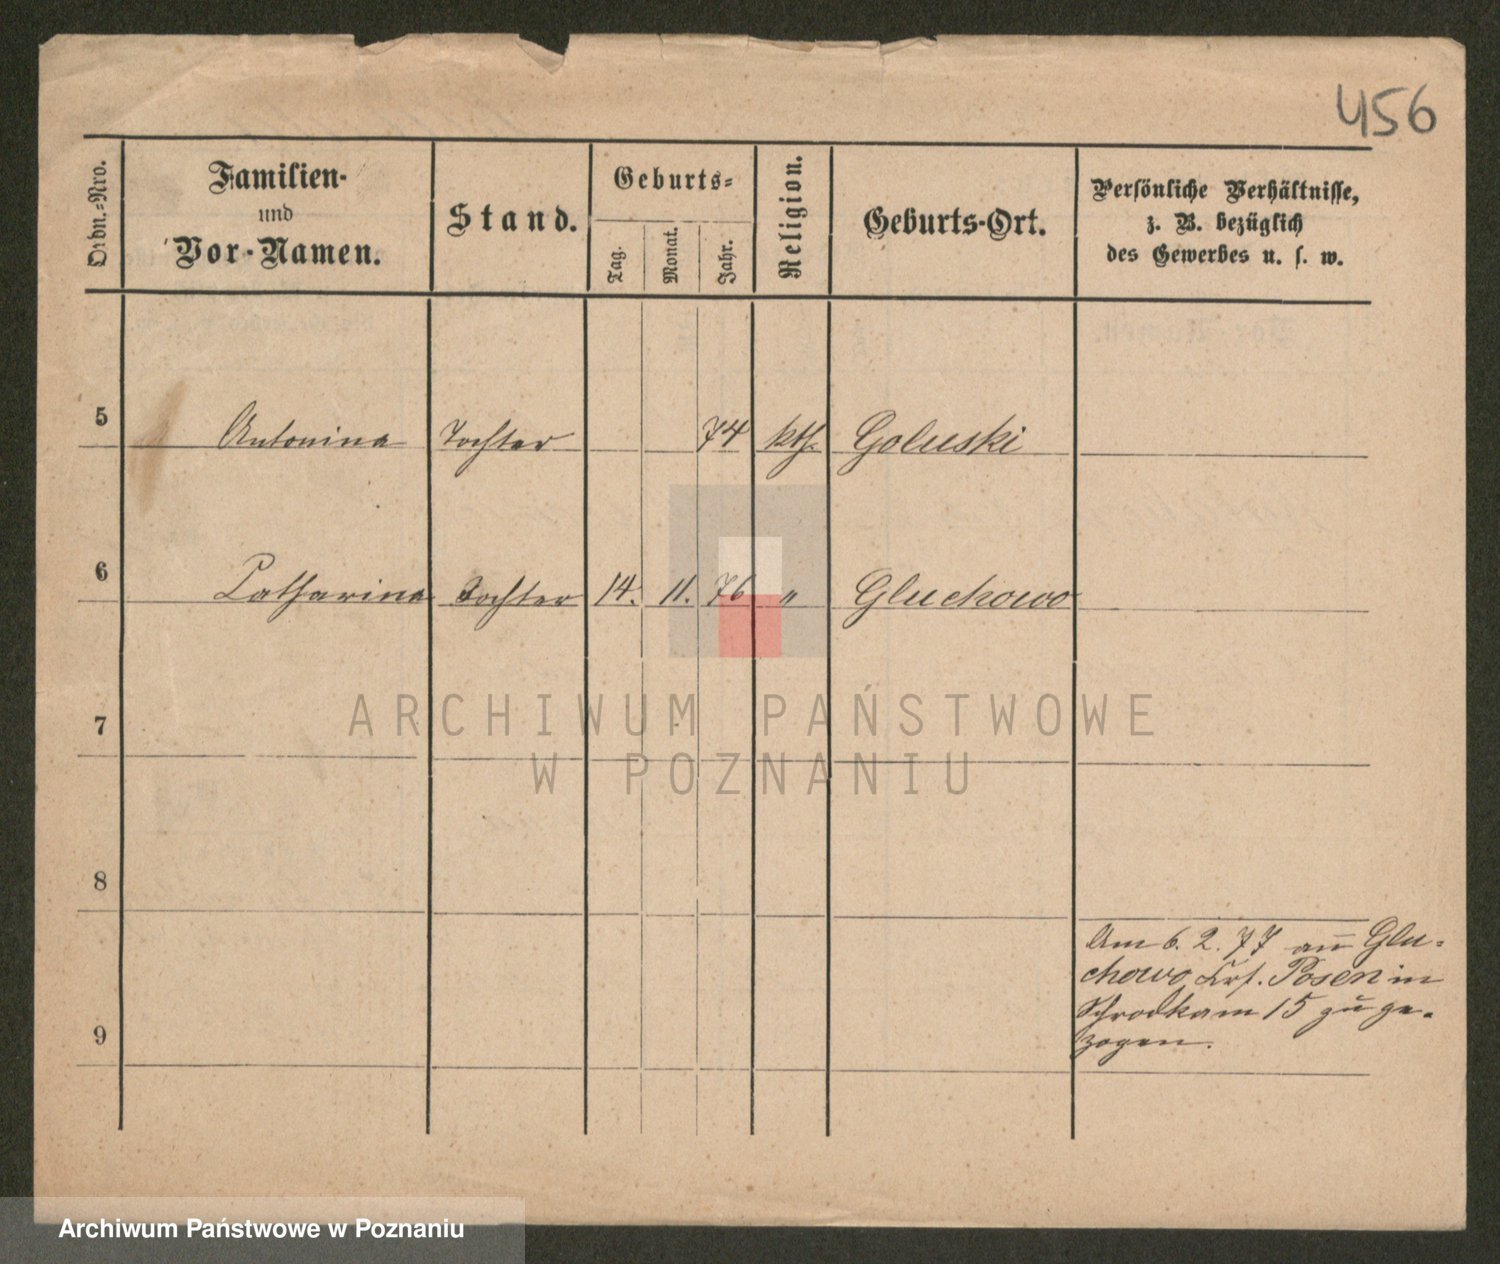 456
Ordn.-Nro.
Familien-
und
Vor-Namen.
Stand.
Geburts-
Tag.
Monat.
Jahr.
Religion.
Geburts-Ort.
Persönliche Verhältnisse,
z. B. bezüglich
des Gewerbes u. s. w.
5 Antonina Tochter 74 kth. Goluski
6 Catharina Tochter 14. 11. 76 " Gluchowo
7
ARCHIWUM PAŃSTWOWE
W POZNANIU
8
Am 6. 2. 77 aus Glu-
chowo Krs. Posen in
Schrodka m 15 zu ge-
zogen.
9
Archiwum Państwowe w Poznaniu